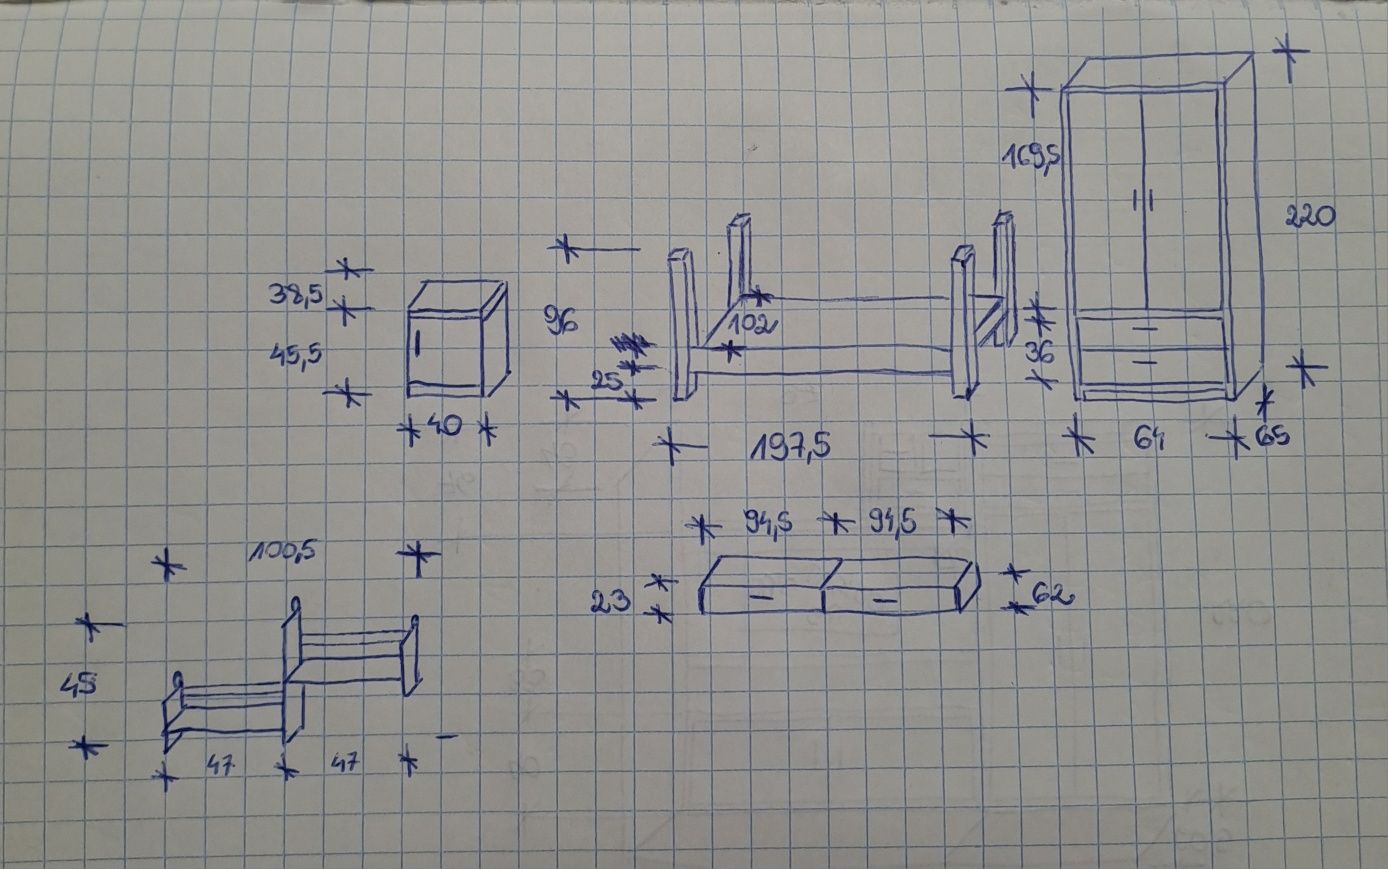 169,5
220
38,5
96
102
45,5
25
36
40
197,5
64
65
94,5
94,5
100,5
23
62
45
47
47